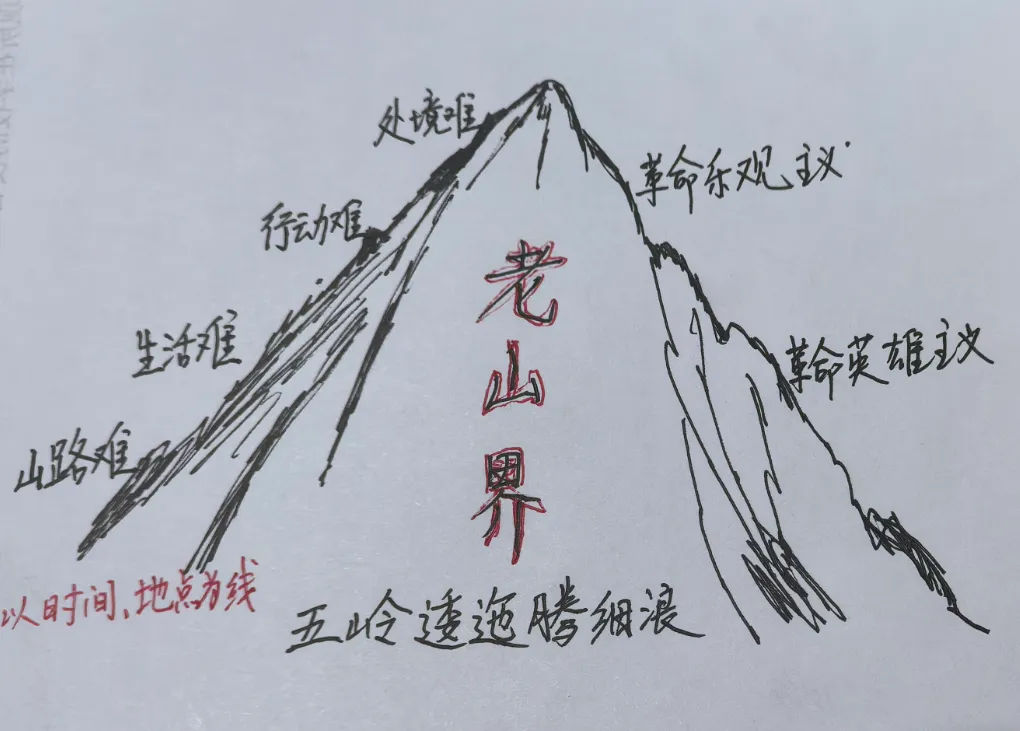 处境难
革命乐观主义
行动难
老山界
生活难
革命英雄主义
山路难
以时间、地点为线
五岭逶迤腾细浪